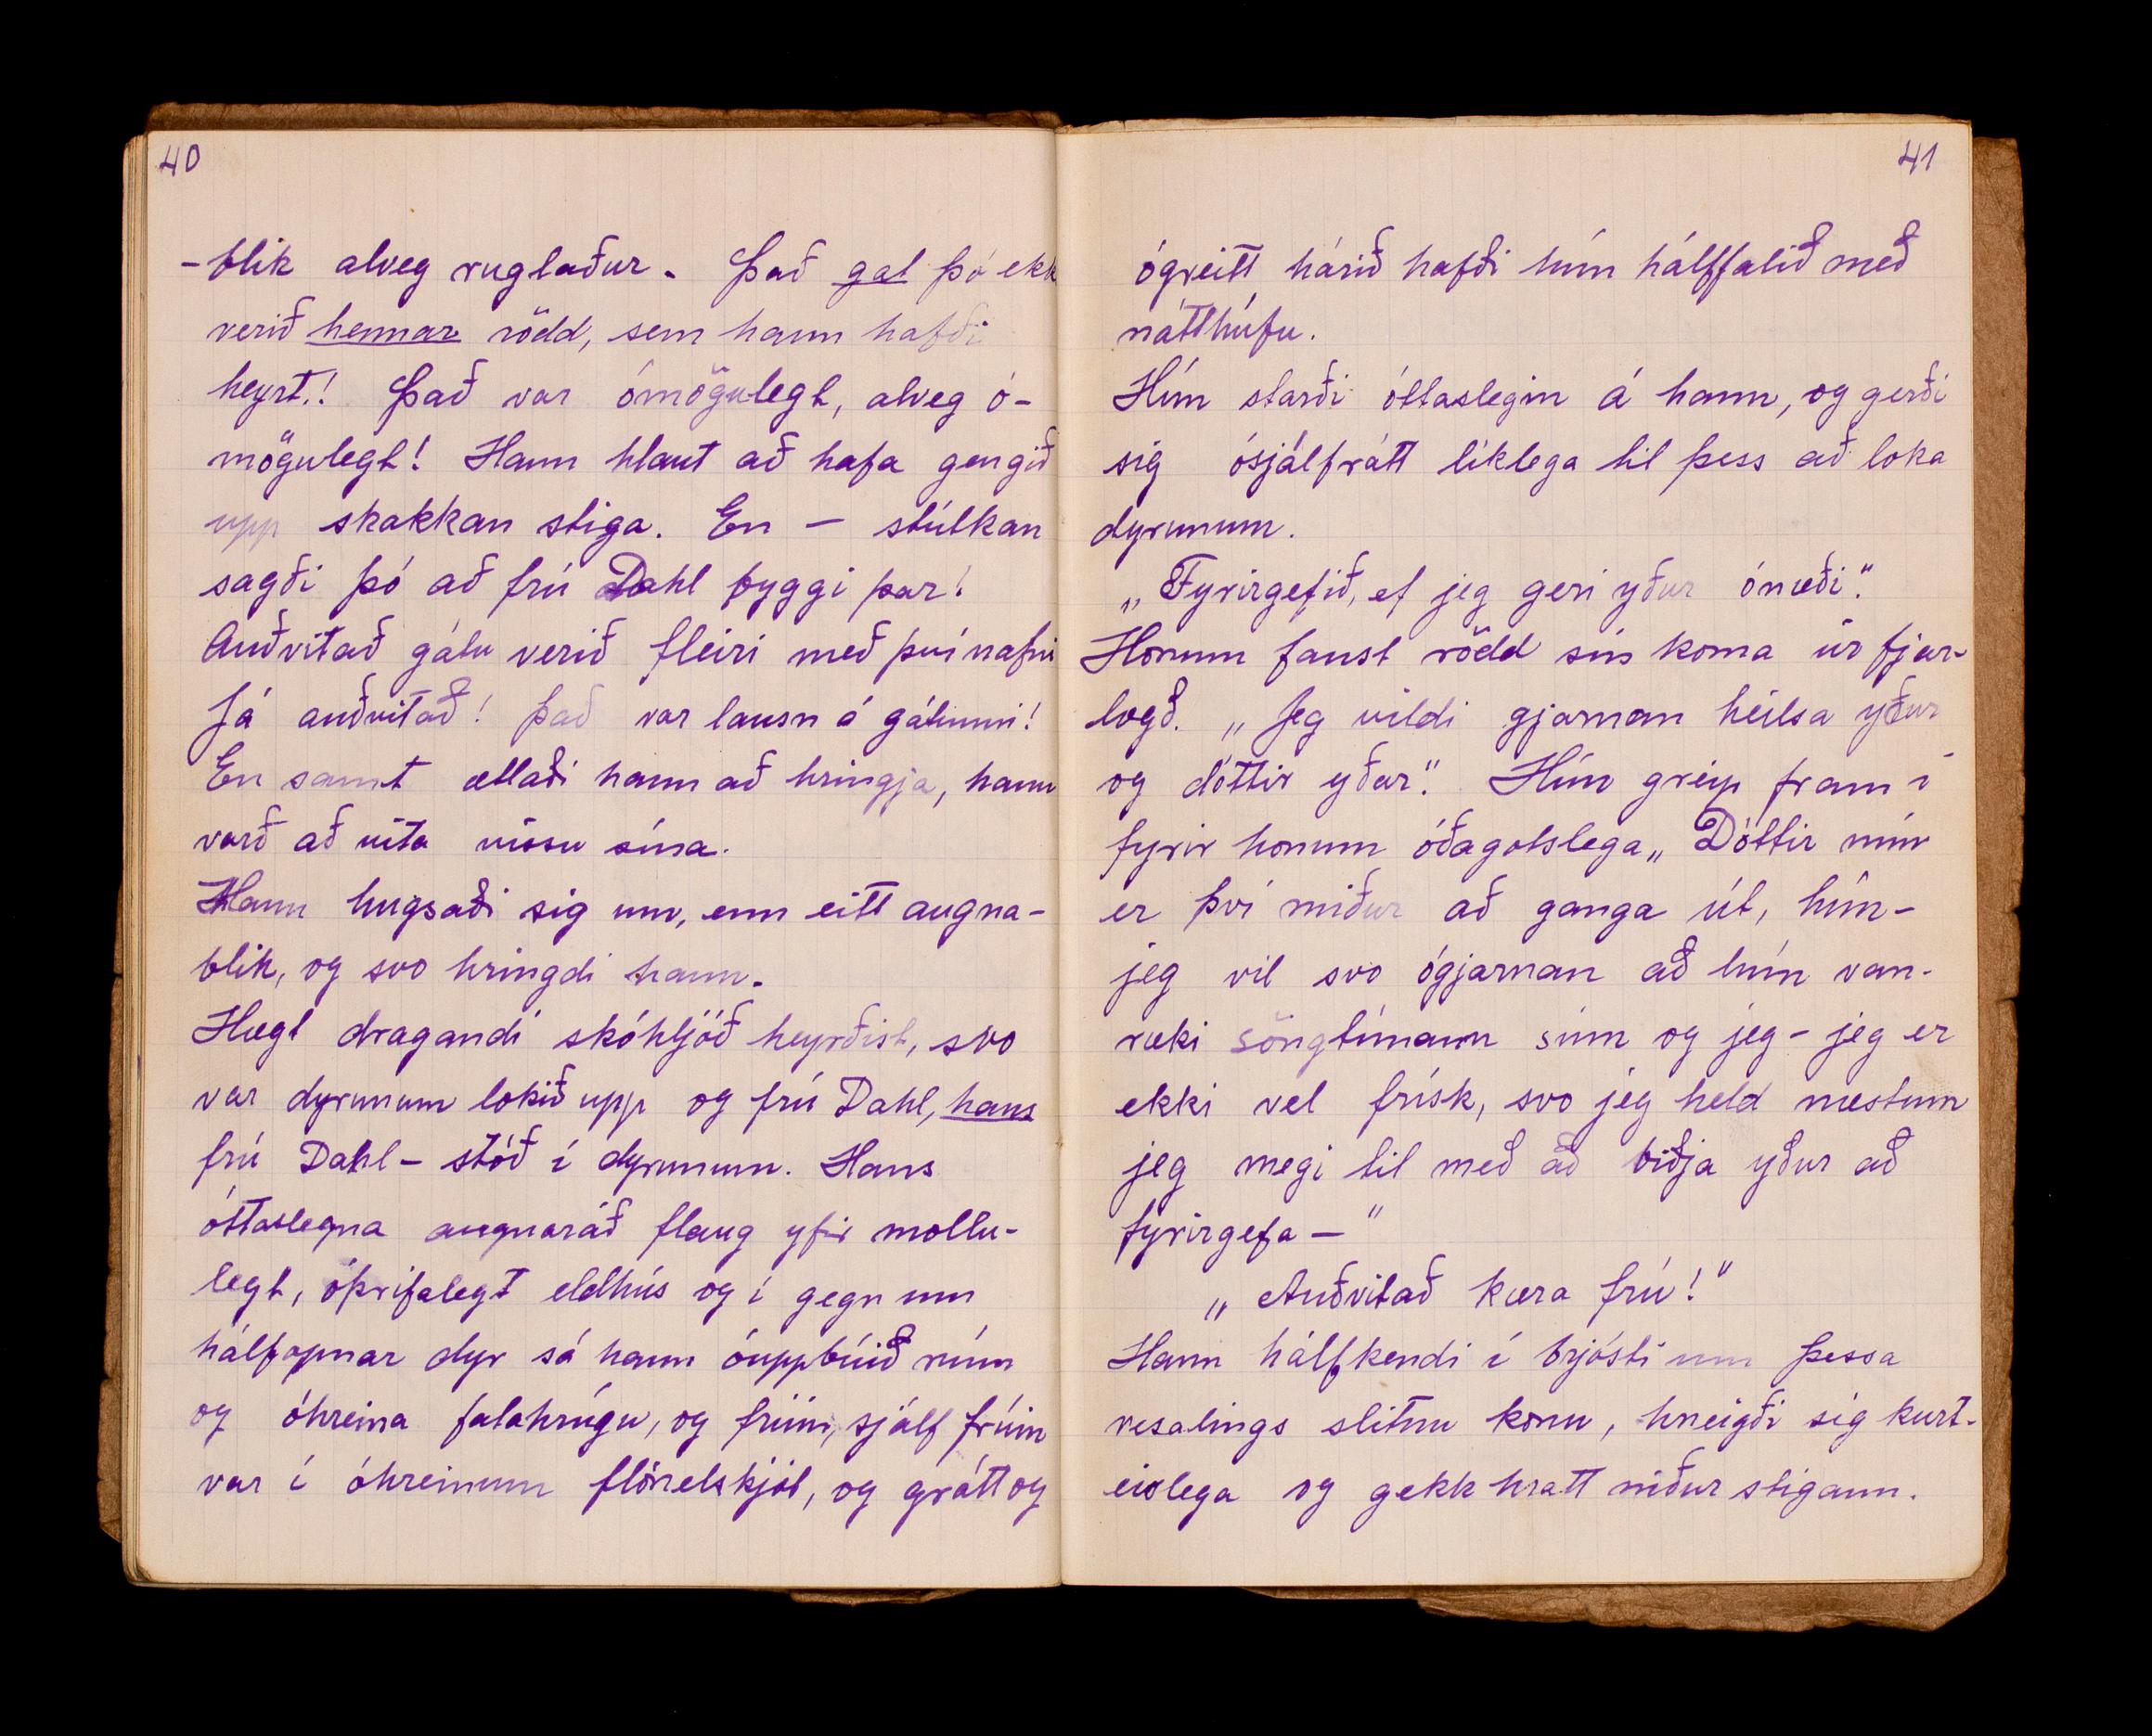 40
-blik alveg ruglaður. Það gat þó ekk
verið hennar rödd, sem hann hafði
heyrt! Það var ómögulegt, alveg ó-
mögulegt! Hann hlaut að hafa gengið
upp skakkan stiga. En — stúlkan
sagði þó að frú Dahl byggi þar!
Auðvitað gátu verið fleiri með því nafni
Já auðvitað! Það var lausn á gátunni!
En samt ætlaði hann að hringja, hann
varð að vita vissu sína.
Hann hugsaði sig um, enn eitt augna-
blik, og svo hringdi hann.
Hægt dragandi skóhljóð heyrðist, svo
var dyrunum lokið upp og frú Dahl, hans
frú Dahl - stóð í dyrunum. Hans
óttaslegna augnaráð flaug yfir mollu-
legt, óþrifalegt eldhús og í gegn um
hálfopnar dyr sá hann óuppbúið rúm
og óhreina fatahrúgu, og frúin, sjálf frúin
var í óhreinum flónelskjól, og grátt og
41
ógreitt hárið hafði hún hálffalið með
nátthúfu.
Hún starði óttaslegin á hann, og gerði
sig ósjálfrátt líklega til þess að loka
dyrunum.
„Fyrirgefið, ef jeg geri yður ónæði".
Honum fanst rödd sín koma úr fjar-
lægð. „Jeg vildi gjarnan heilsa yður
og dóttir yðar". Hún greip fram í
fyrir honum óðagotslega „Dóttir mín
er því miður að ganga út, hún-
jeg vil svo ógjarnan að hún van-
ræki söngtímann sinn og jeg - jeg er
ekki vel frísk, svo jeg held næstum
jeg megi til með að biðja yður að
fyrirgefa —"
„Auðvitað kæra frú!"
Hann hálfkendi í brjósti um þessa
vesalings slitnu konu, hneigði sig kurt-
eislega og gekk hratt niður stigann.